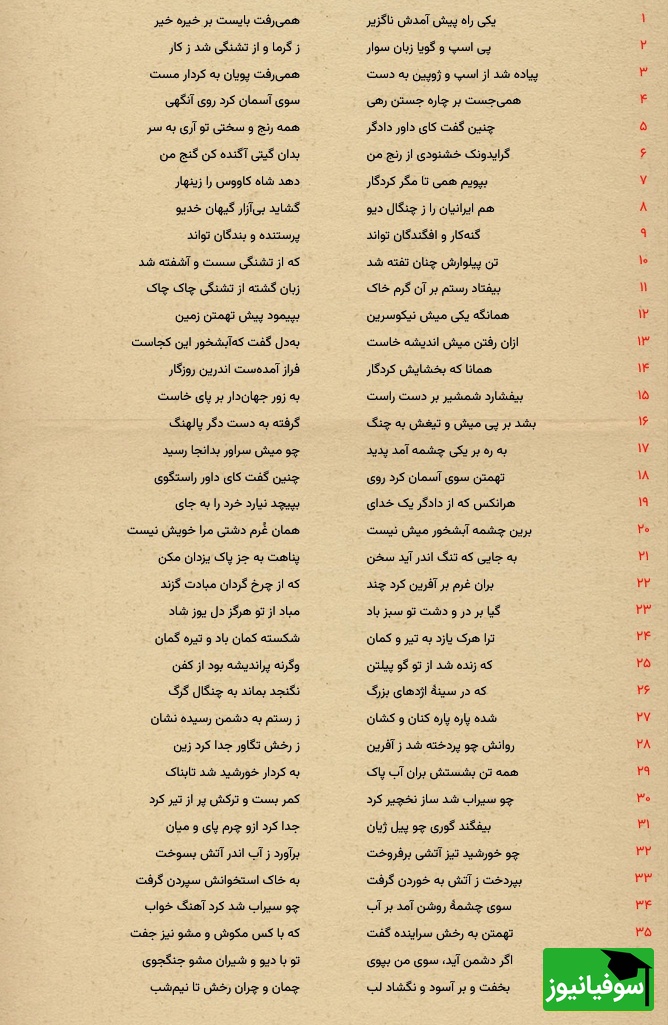 ۱ یکی راه پیش آمدش ناگزیر همی‌رفت بایست بر خیره خیر
۲ پی اسپ و گویا زبان سوار ز گرما و از تشنگی شد ز کار
۳ پیاده شد از اسپ و ژوپین به دست همی‌رفت پویان به کردار مست
۴ همی‌جست بر چاره جستن رهی سوی آسمان کرد روی آنگهی
۵ چنین گفت کای داور دادگر همه رنج و سختی تو آری به سر
۶ گرایدونک خشنودی از رنج من بدان گیتی آگنده کن گنج من
۷ بپویم همی تا مگر کردگار دهد شاه کاووس را زینهار
۸ هم ایرانیان را ز چنگال دیو گشاید بی‌آزار گیهان خدیو
۹ گنه‌کار و افگندگان تواند پرستنده و بندگان تواند
۱۰ تن پیلوارش چنان تفته شد که از تشنگی سست و آشفته شد
۱۱ بیفتاد رستم بر آن گرم خاک زبان گشته از تشنگی چاک چاک
۱۲ همانگه یکی میش نیکوسرین بپیمود پیش تهمتن زمین
۱۳ ازان رفتن میش اندیشه خاست به‌دل گفت که‌آبشخور این کجاست
۱۴ همانا که بخشایش کردگار فراز آمده‌ست اندرین روزگار
۱۵ بیفشارد شمشیر بر دست راست به زور جهان‌دار بر پای خاست
۱۶ بشد بر پی میش و تیغش به چنگ گرفته به دست دگر پالهنگ
۱۷ به ره بر یکی چشمه آمد پدید چو میش سراور بدانجا رسید
۱۸ تهمتن سوی آسمان کرد روی چنین گفت کای داور راستگوی
۱۹ هرانکس که از دادگر یک خدای بپیچد نیارد خرد را به جای
۲۰ برین چشمه آبشخور میش نیست همان غُرم دشتی مرا خویش نیست
۲۱ به جایی که تنگ اندر آید سخن پناهت به جز پاک یزدان مکن
۲۲ بران غرم بر آفرین کرد چند که از چرخ گردان مبادت گزند
۲۳ گیا بر در و دشت تو سبز باد مباد از تو هرگز دل یوز شاد
۲۴ ترا هرک یازد به تیر و کمان شکسته کمان باد و تیره گمان
۲۵ که زنده شد از تو گو پیلتن وگرنه پراندیشه بود از کفن
۲۶ که در سینهٔ اژدهای بزرگ نگنجد بماند به چنگال گرگ
۲۷ شده پاره پاره کنان و کشان ز رستم به دشمن رسیده نشان
۲۸ روانش چو پردخته شد ز آفرین ز رخش تگاور جدا کرد زین
۲۹ همه تن بشستش بران آب پاک به کردار خورشید شد تابناک
۳۰ چو سیراب شد ساز نخچیر کرد کمر بست و ترکش پر از تیر کرد
۳۱ بیفگند گوری چو پیل ژیان جدا کرد ازو چرم پای و میان
۳۲ چو خورشید تیز آتشی برفروخت برآورد ز آب اندر آتش بسوخت
۳۳ بپردخت ز آتش به خوردن گرفت به خاک استخوانش سپردن گرفت
۳۴ سوی چشمهٔ روشن آمد بر آب چو سیراب شد کرد آهنگ خواب
۳۵ تهمتن به رخش سراینده گفت که با کس مکوش و مشو نیز جفت
اگر دشمن آید، سوی من بپوی تو با دیو و شیران مشو جنگجوی
بخفت و بر آسود و نگشاد لب چمان و چران رخش تا نیم‌شب
سوفیانیوز